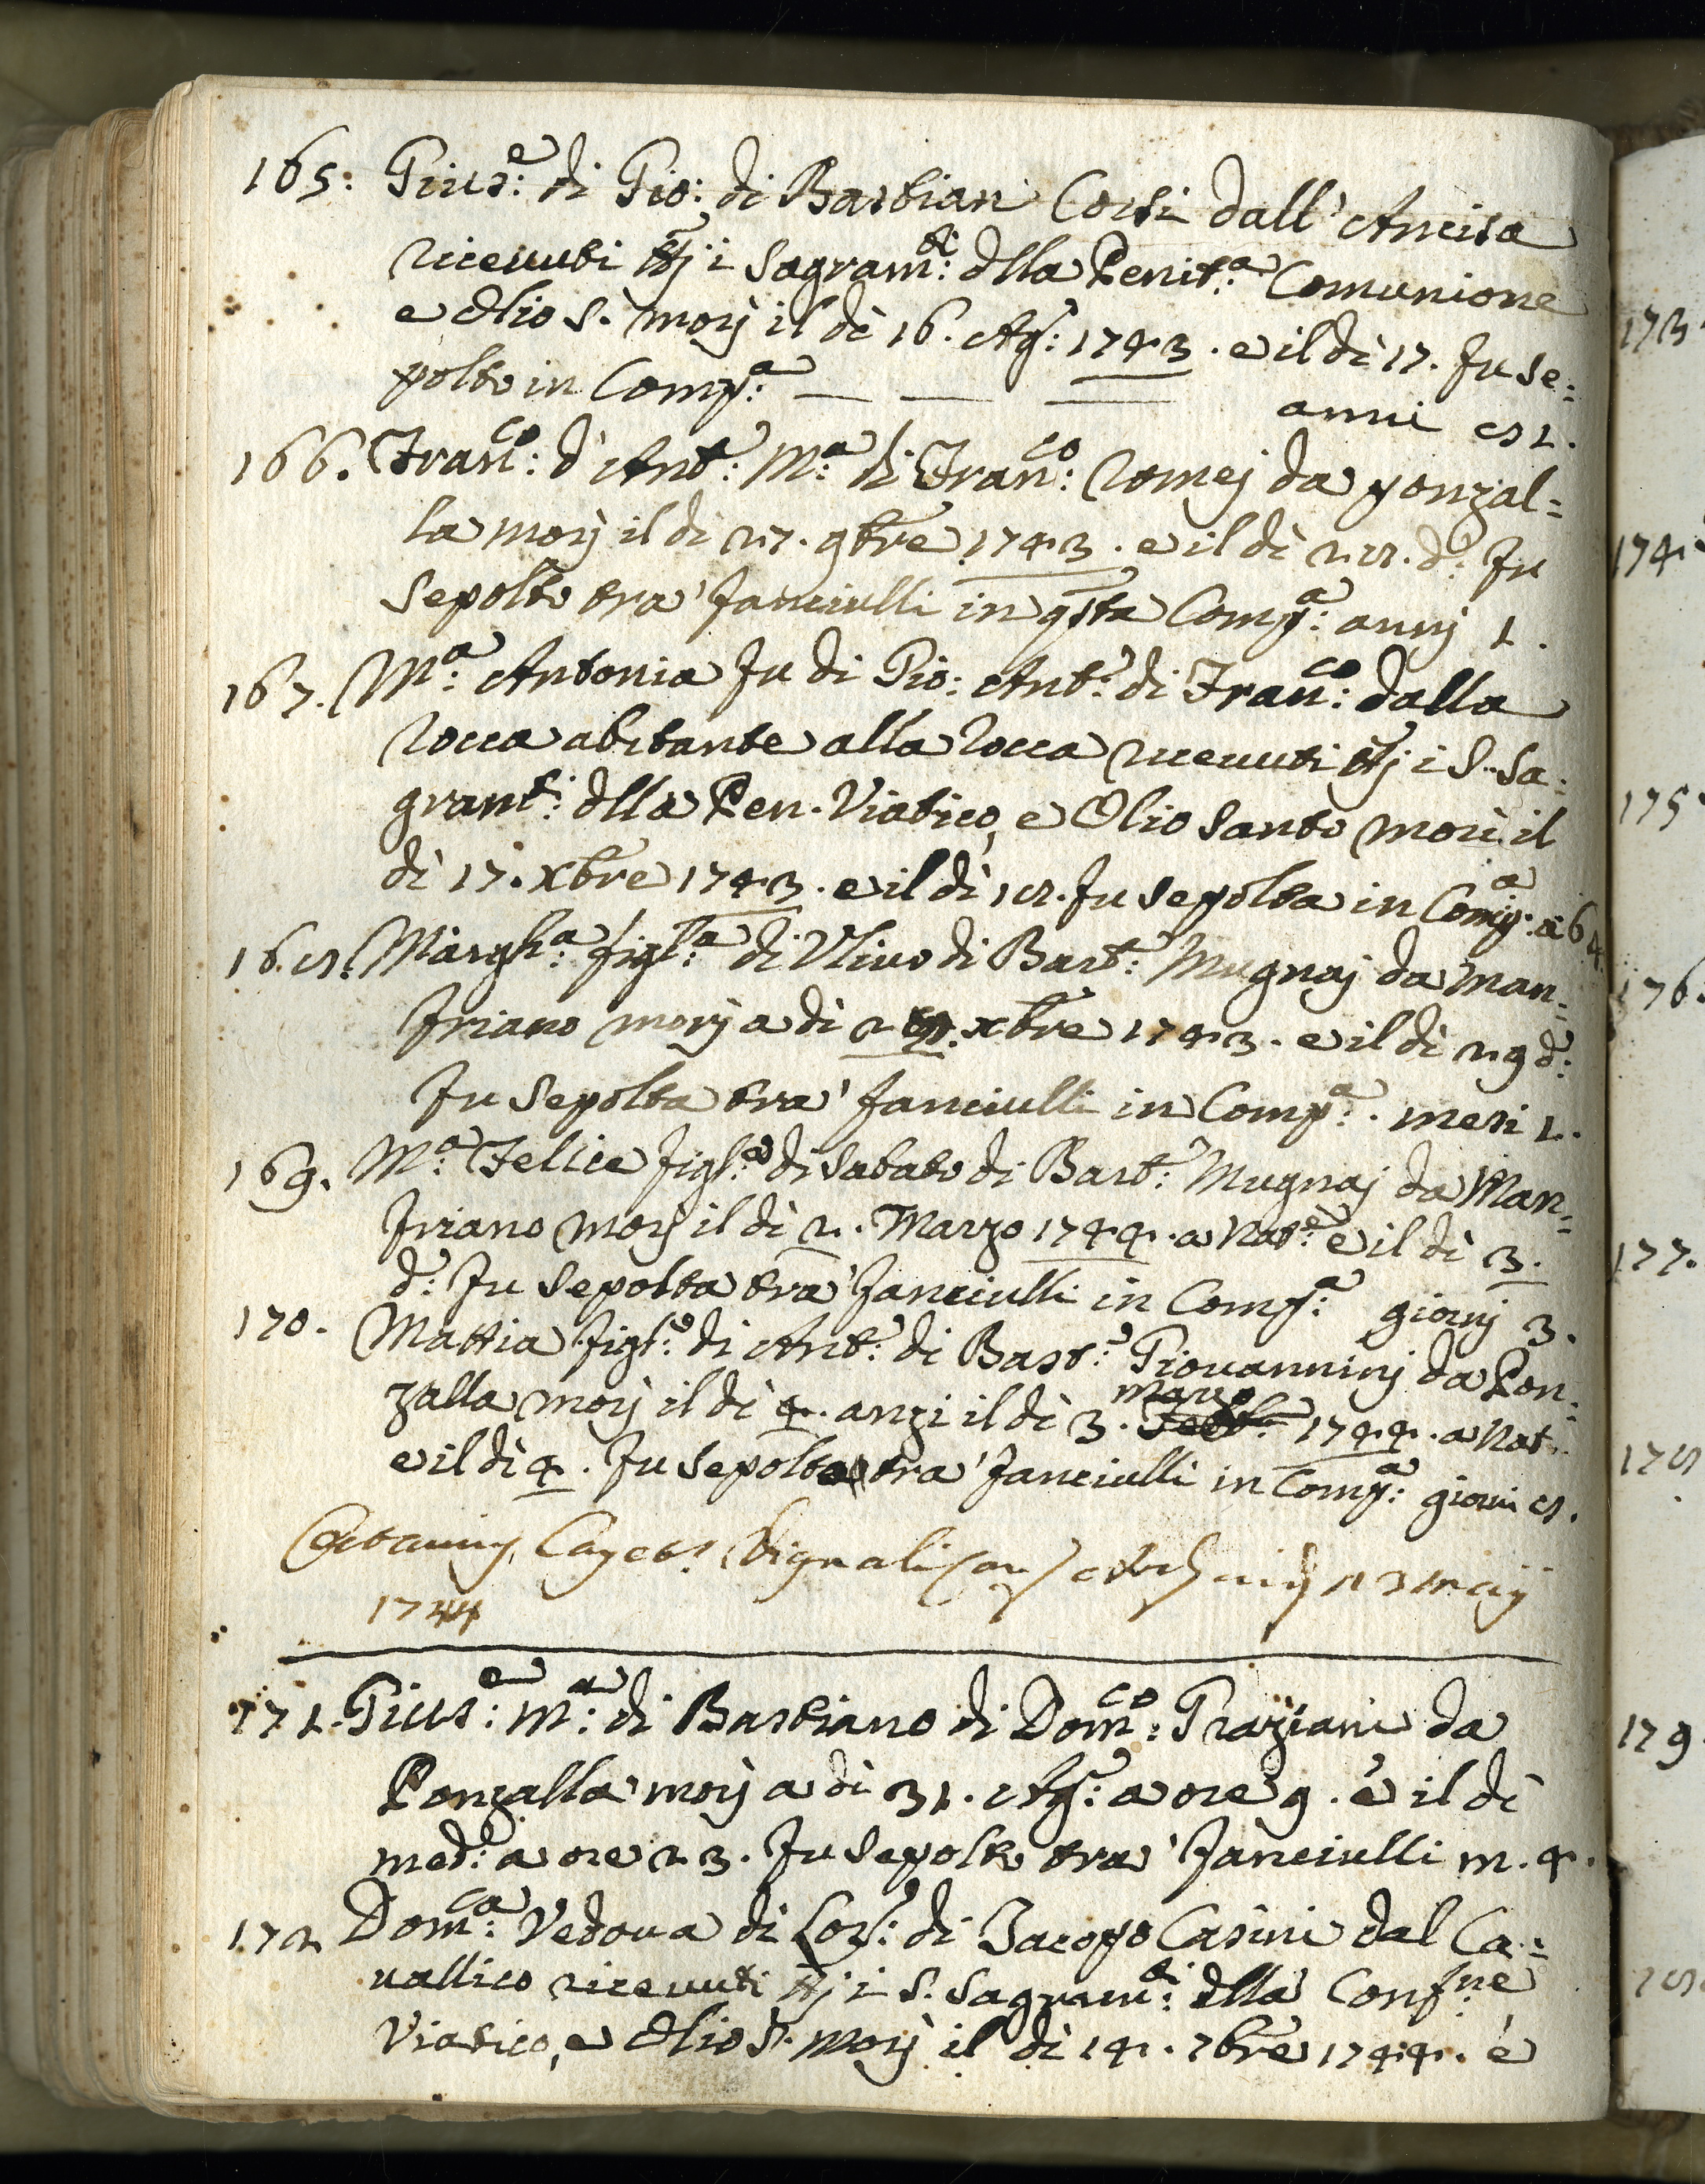 165. Gius:e di Gio: di Bastian Corsi dall'Ancisa
ricevuti ttj i Sagram:ti dlla Penit:a Comunione
e Olio S. morj il dì 16. Ag: 1743. e il dì 17. fu se=
polto in Comp:a — — — anni 81.
166. Fran:co d'Ant: M:a di Fran:co Romej da ponzal=
la morj il di 27. 9bre 1743. e il dì 28. d: fu
Sepolto tra' fanciulli in qsta Comp:a annj 1.
167. M:a Antonia fu di Gio: Ant: di Fran:co dalla
Rocca abitante alla Rocca ricevuti ttj i S. Sa=
gram:ti dlla Pen. Viatico, e Olio Santo morì il
dì 17. Xbre 1743. e il dì 18. fu sepolta in Comp:a a 64.
168. Margh:a figl:a di Ulivo di Bart: Mugnaj da Man=
friano morj a di 28. Xbre 1743. e il di 29 d:
fu Sepolta tra' fanciulli in Comp:a. mesi 1.
169. M:a Felice figl:a di Sabato di Bart: Mugnaj da Man=
friano morj il dì 2. Marzo 1744. a Nat:e e il dì 3.
d: fu Sepolta tra' fanciulli in Comp:a giornj 3.
170. Mattia figl:o di Ant: di Bast: Giovanninj da Pon=
zalla morj il dì 4. anzi il dì 3. Marzo 1744. a Nat.
e il dì 4. fu Sepolto tra' fanciulli in Comp:a giorni 8.
1744
171. Gius:e M:a di Bastiano di Dom:co Graziani da
Ponzalla morj a di 31. Ag: a ore 9. e il dì
med: a ore 23. fu Sepolto tra' fanciulli m. 4.
172 Dom:ca Vedova di Lor: di Jacopo Casini dal Ca=
vallico ricevuti ttj i S. Sagram:ti dlla Conf:ne
Viatico, e Olio S. morj il dì 14. 7bre 1744. e
173.
174.
175.
176.
177.
178
179.